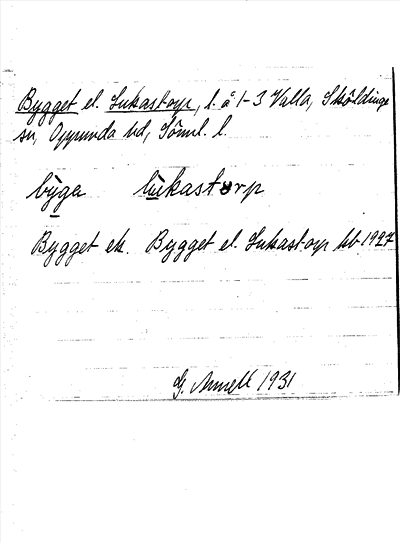 Bygget el. Lukastorp, l. å 1-3 Valla, Sköldinge
sn, Oppunda hd, Söml. l.
byga lukastorp
Bygget ek. Bygget el. Lukastorp kb 1927
G. Annell 1931